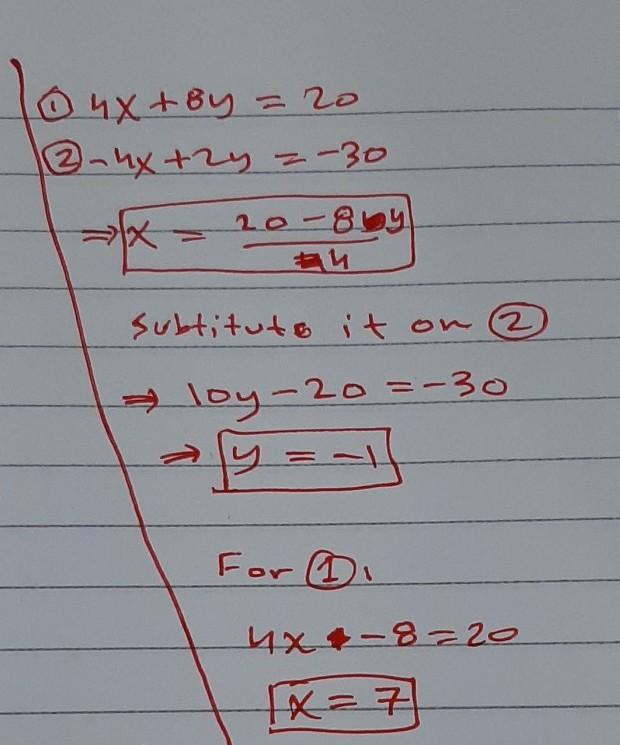 ① 4x + 8y = 20
② -4x + 2y = -30
⇒ x = 20 - 8y / 4
subtitute it on ②
⇒ 10y - 20 = -30
⇒ y = -1
For ①,
4x - 8 = 20
x = 7